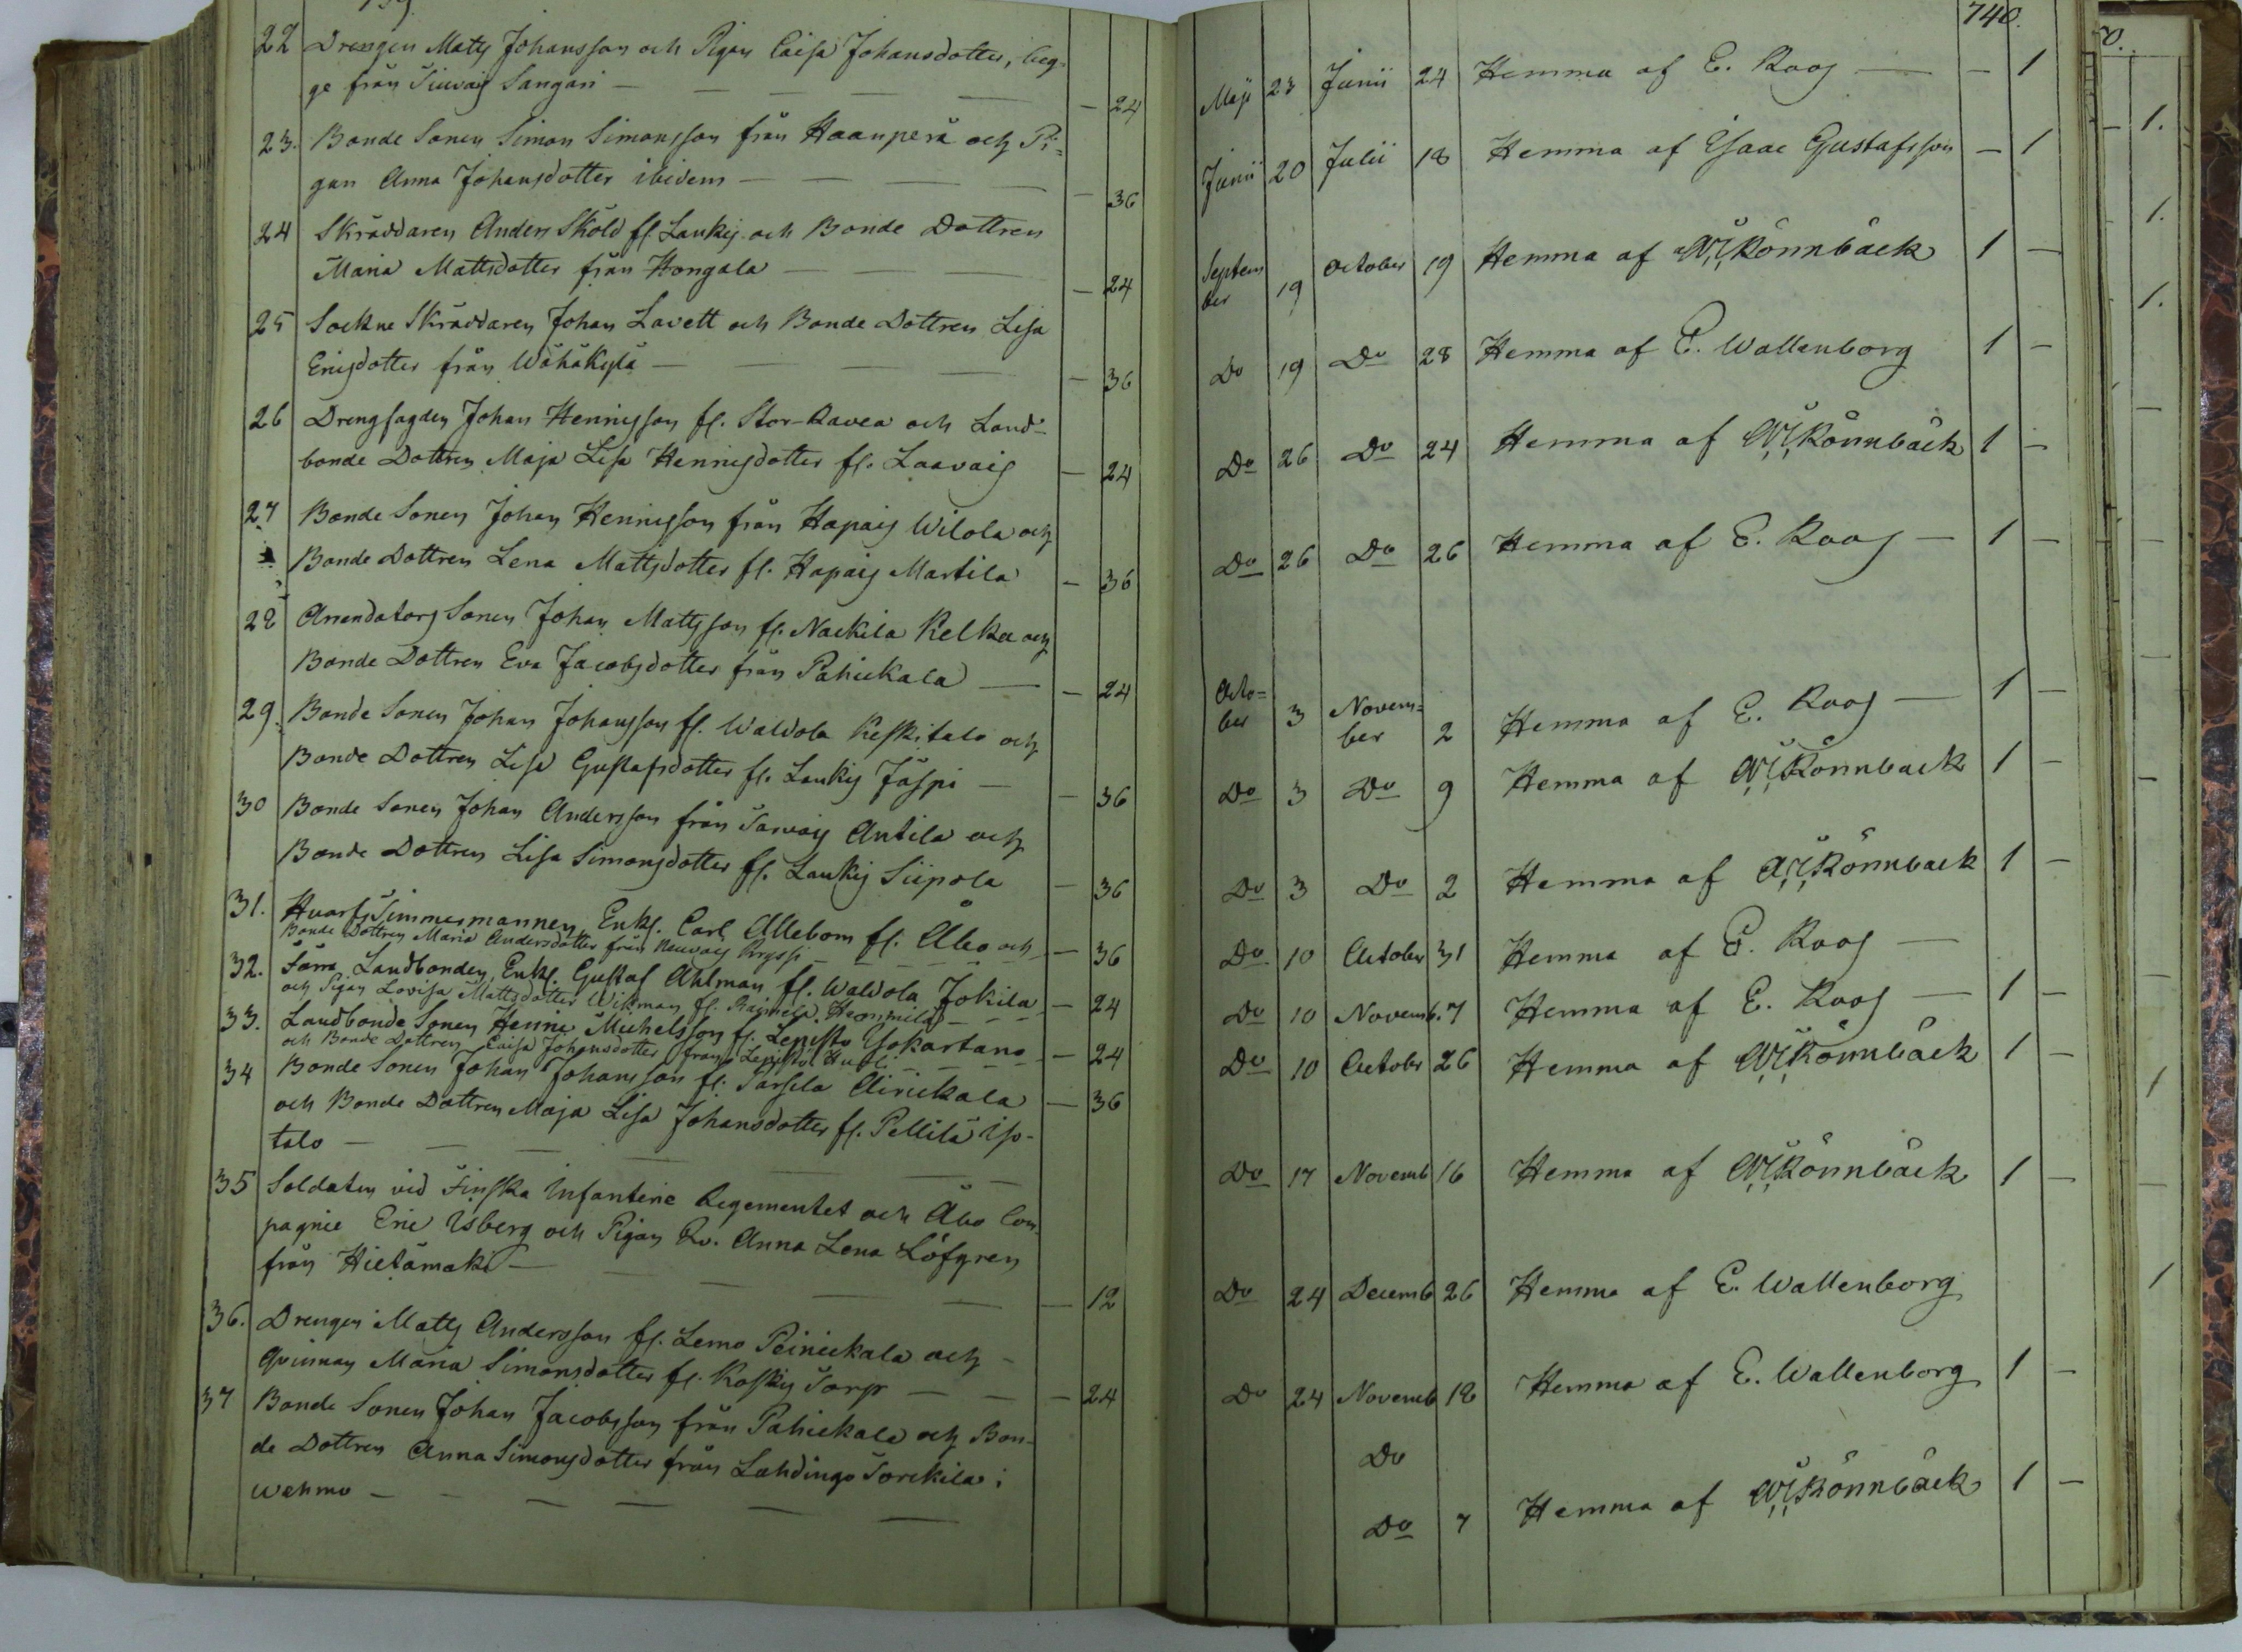 739
22 Drengen Matts Johansson och Pigan Caisa Johansdotter, beg-
ge från Sangari — 24
23. Bonde Sonen Simon Simonsson från Haanperä och Pi=
gan Anna Johansdotter ibidem — 36
24 Skräddaren Anders Sköld fr. Laukis och Bonde Dottren
Maria Mattsdotter från Hongala — 24
25 Sockne Skräddaren Johan Lavett och Bonde Dottren Lisa
Ericsdotter från Wähäkylä — 36
26 Johan Henricsson fr. Stor-Ravea och Land-
bonde Dottren Maja Lisa Henricsdotter fr. — 24
27 Bonde Sonen Johan Henricsson från Hapais Wilola och
Bonde Dottren Lena Mattsdotter fr. Hapais Martila — 36
28 Arrendators Sonen Johan Mattsson fr. Nackila Kelka och
Bonde Dottren Eva Jacobsdotter från Pahickala — 24
29. Bonde Sonen Johan Johansson fr. Waldola Keskitalo och
Bonde Dottren Lisa Gustafsdotter fr. Laukis Jäspi — 36
30 Bonde Sonen Johan Andersson från Sarvais Antila och
Bonde Dottren Lisa Simonsdotter fr. Laukis Siepola — 36
31. Hvarfs Timmermannen, Enkl. Carl Allebom fr. Åbo och — 36
Bonde Dottren Maria Andersdotter från
32. Landbonden, Enkl. Gustaf Ahlman fr. Waldola Jokila — 24
och Pigan Lovisa Mattsdotter Wikman fr. Raimela Hemmilä
33. Landbonde Sonen Henric Michelsson fr. Lepistö Isokartano — 24
och Bonde Dottren Caisa Johansdotter från Lepistö
34 Bonde Sonen Johan Johansson fr. Airickala — 36
och Bonde Dottren Maja Lisa Johansdotter fr. Pellilä Iso-
talo —
35 Soldaten vid Finska Infanterie Regementet och Åbo Com-
pagnie Eric Isberg och Pigan Anna Lena Löfgren
från Hietamäki — 12
36. Drengen Matts Andersson fr. Lemo Peinickala och
Qvinnan Maria Simonsdotter fr. Koskis Torp — 24
37 Bonde Sonen Johan Jacobsson från Pahickala och Bon-
de Dottren Anna Simonsdotter från Lahdingo i
Wehmo —
740.
Maji 23 Junii 24 Hemma af E. Roos — — 1
Junii 20 Julii 18 Hemma af Isaac Gustafsson — 1
Septem
ber 19 October 19 Hemma af Rönnbäck 1 —
Do 19 Do 28 Hemma af E. Wallenborg 1 —
Do 26 Do 24 Hemma af Rönnbäck 1 —
Do 26 Do 26 Hemma af E. Roos — 1 —
Octo=
ber 3 Novem=
ber 2 Hemma af E. Roos — 1 —
Do 3 Do 9 Hemma af Rönnback 1 —
Do 3 Do 2 Hemma af Rönnback 1 —
Do 10 October 31 Hemma af E. Roos —
Do 10 Novemb. 7 Hemma af E. Roos — 1 —
Do 10 Octobr 26 Hemma af Rönnbäck 1 —
Do 17 Novemb 16 Hemma af Rönnbäck 1 —
Do 24 Decemb 26 Hemma af E. Wallenborg
Do 24 Novemb 18 Hemma af E. Wallenborg 1 —
Do
Do 7 Hemma af Rönnbäck 1 —